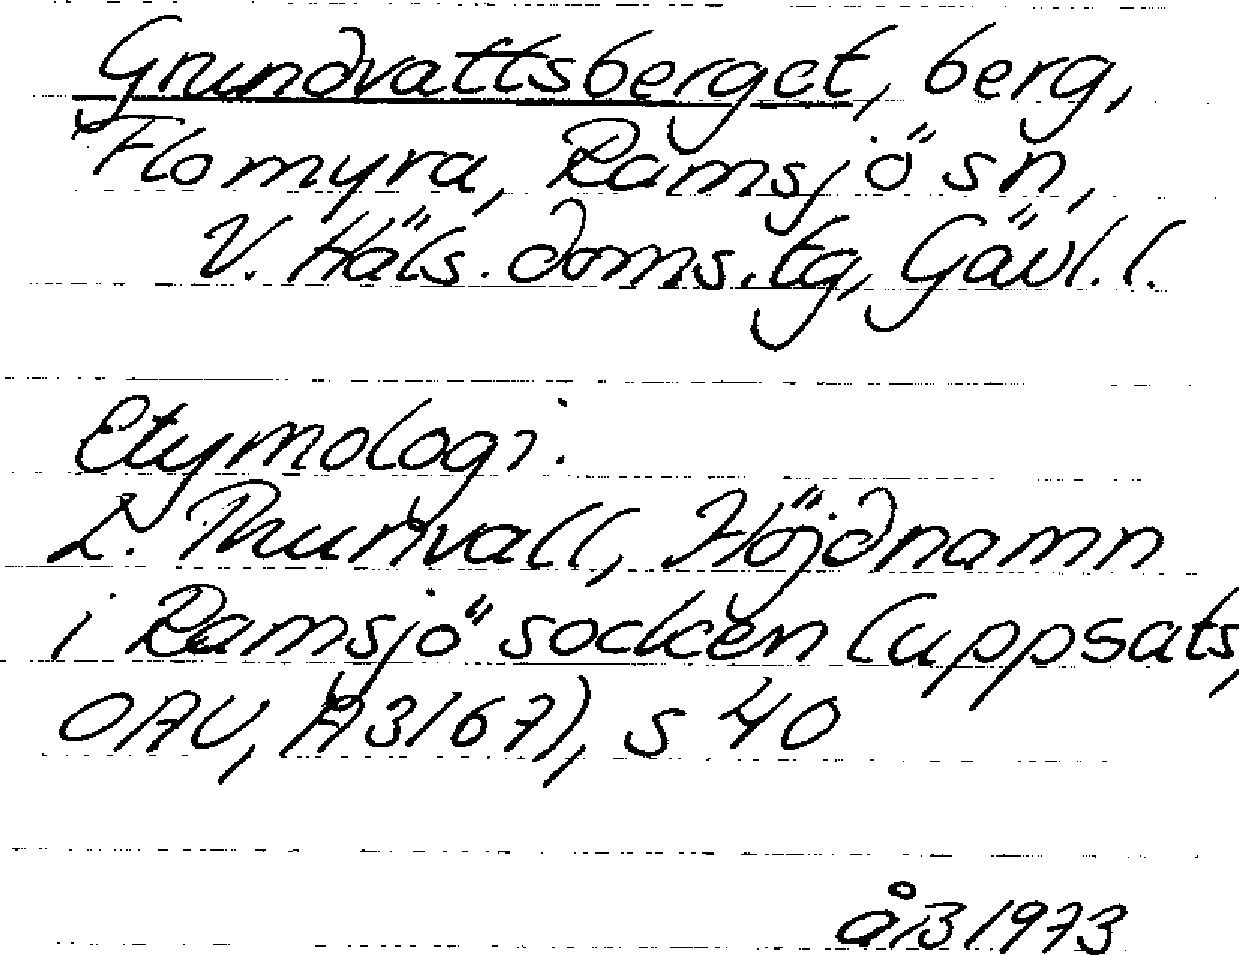 Grundvattsberget, berg,
Flomyra, Ramsjö sn,
V. Häls. doms. tg, Gävl. l.
Etymologi.
L. Thunvall, Höjdnamn
i Ramsjö socken (uppsats,
OAU, A3167), s 40
åB 1973